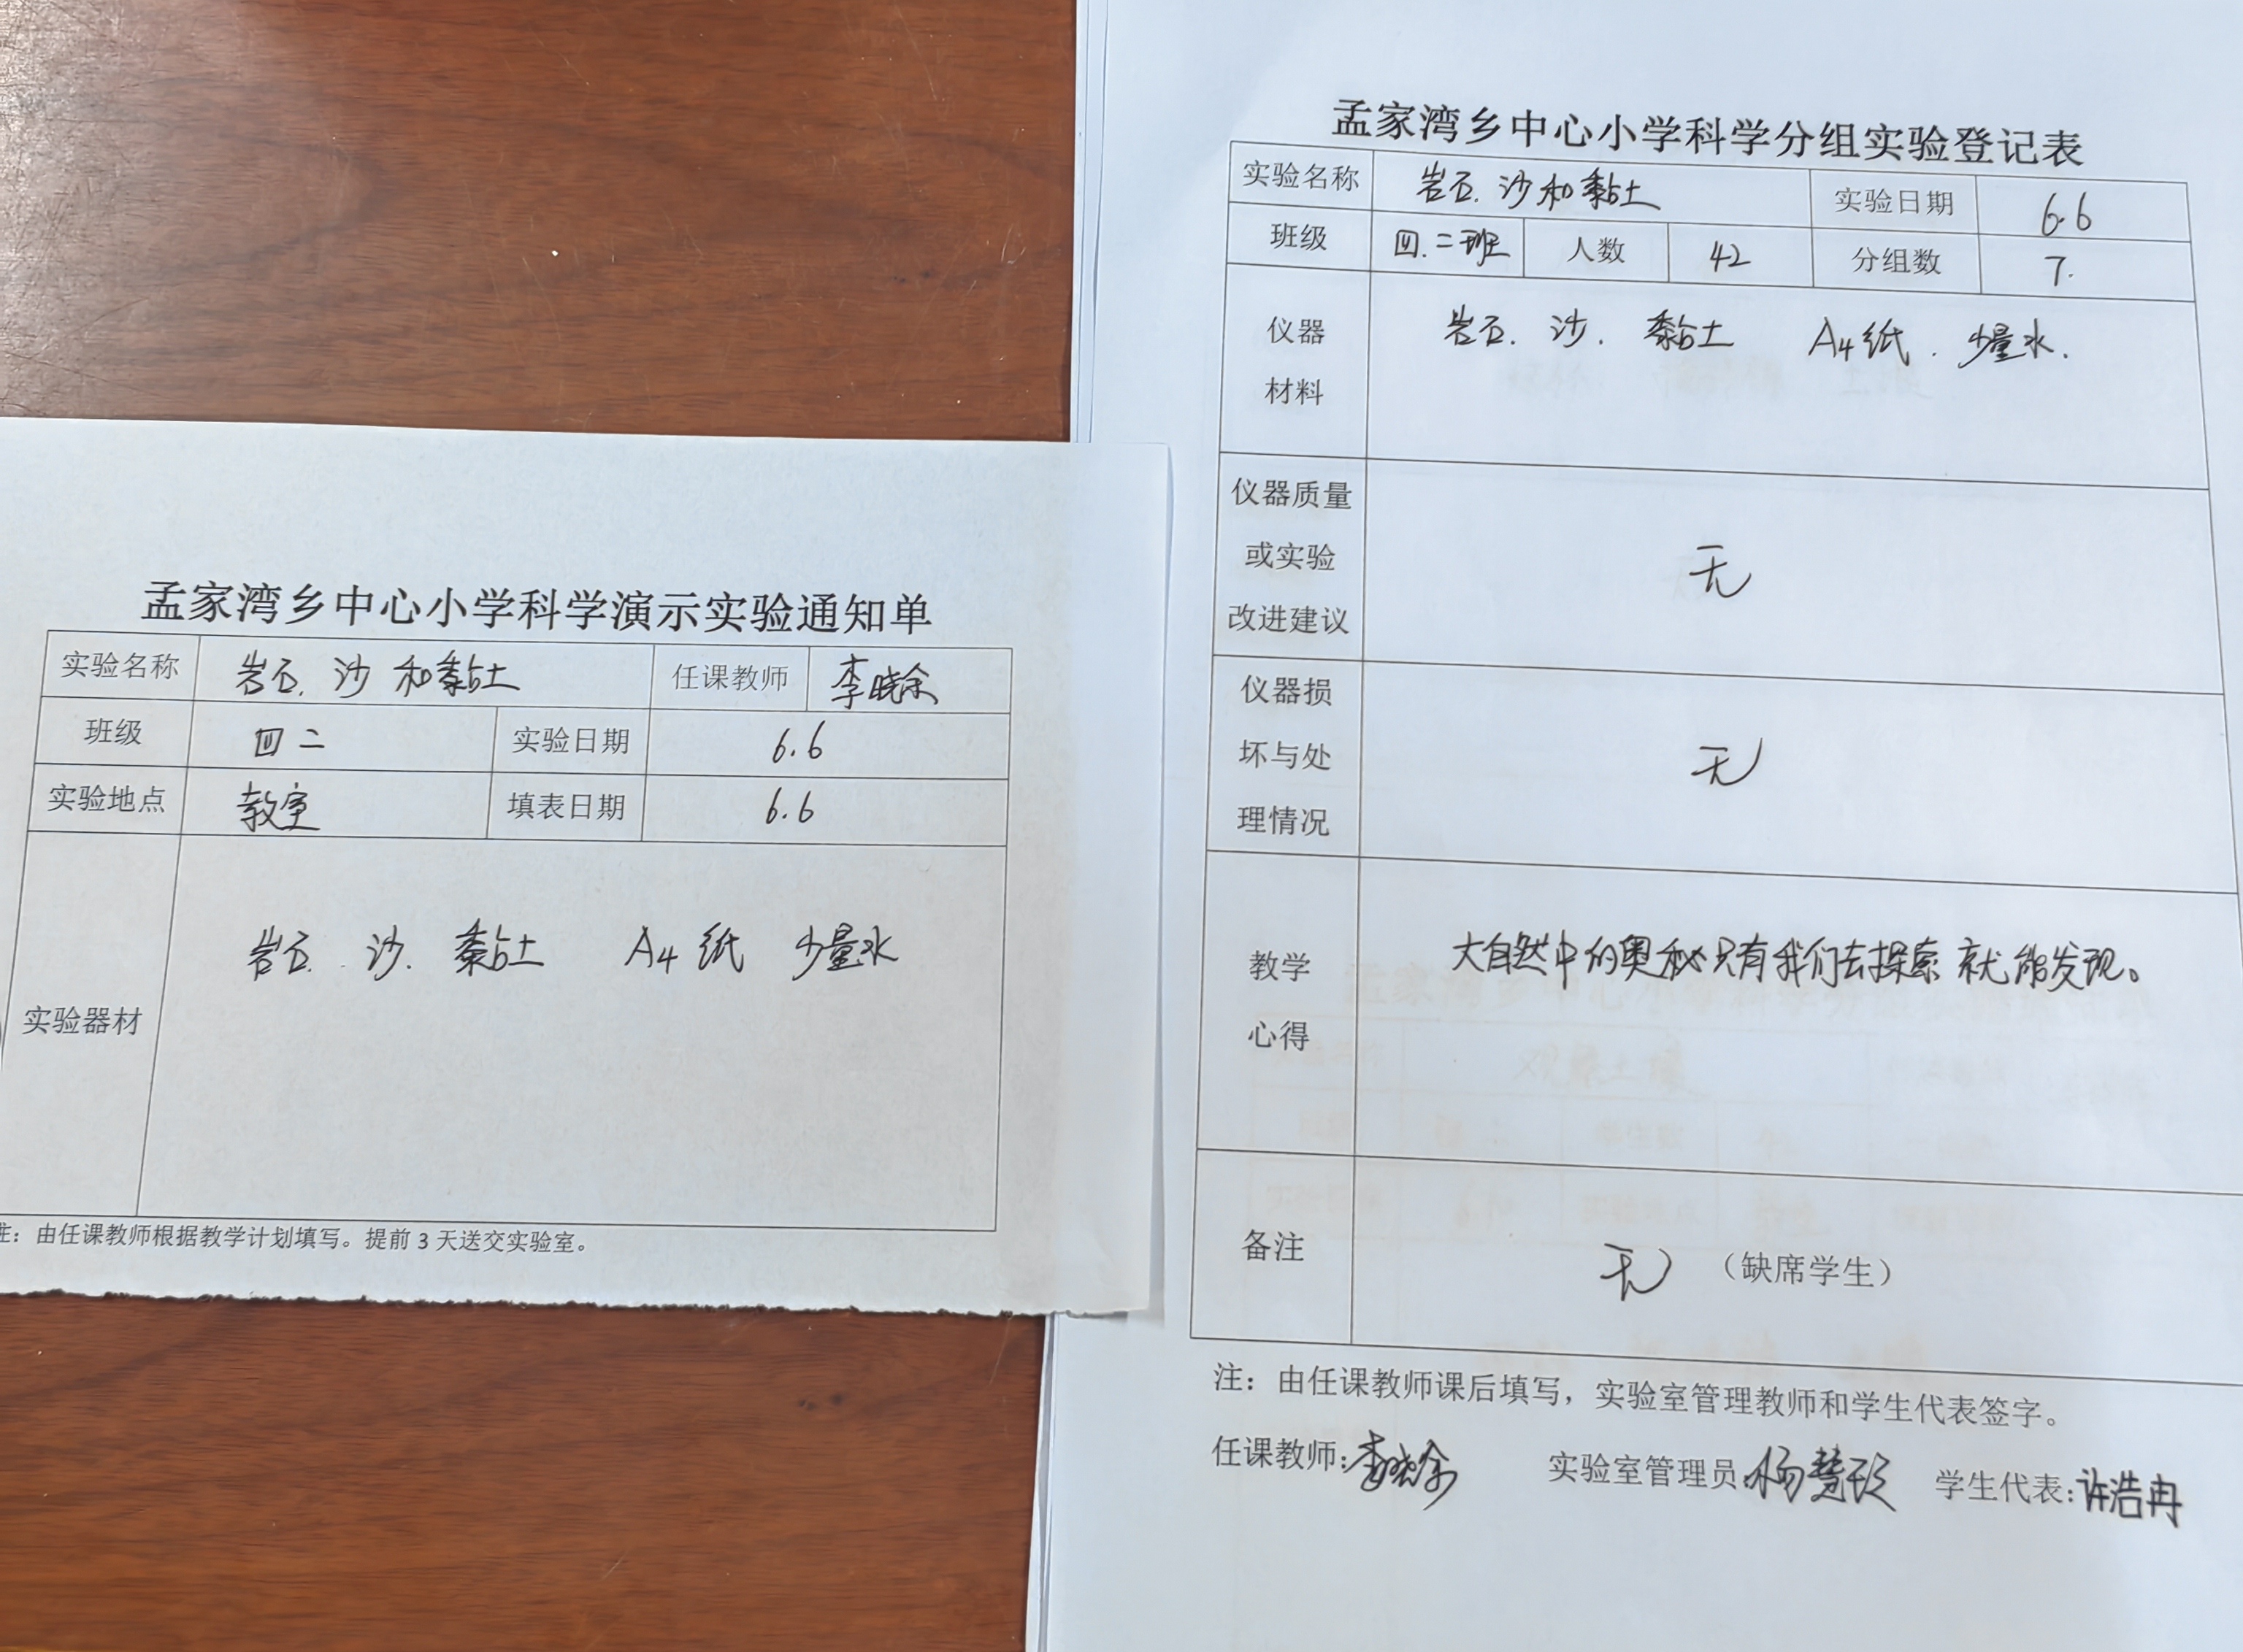 孟家湾乡中心小学科学演示实验通知单
实验名称 岩石. 沙 和黏土 任课教师 李晓余
班级 四 二 实验日期 6.6
实验地点 教室 填表日期 6.6
实验器材 岩石. 沙. 黏土 A4 纸 少量水
注：由任课教师根据教学计划填写。提前 3 天送交实验室。
孟家湾乡中心小学科学分组实验登记表
实验名称 岩石. 沙和黏土 实验日期 6.6
班级 四.二班 人数 42 分组数 7.
仪器
材料
岩石. 沙. 黏土 A4纸. 少量水.
仪器质量
或实验
改进建议
无
仪器损
坏与处
理情况
无
教学
心得
大自然中的奥秘只有我们去探索 就能发现。
备注 无 （缺席学生）
注：由任课教师课后填写，实验室管理教师和学生代表签字。
任课教师:李晓余 实验室管理员: 杨慧 学生代表:许浩冉